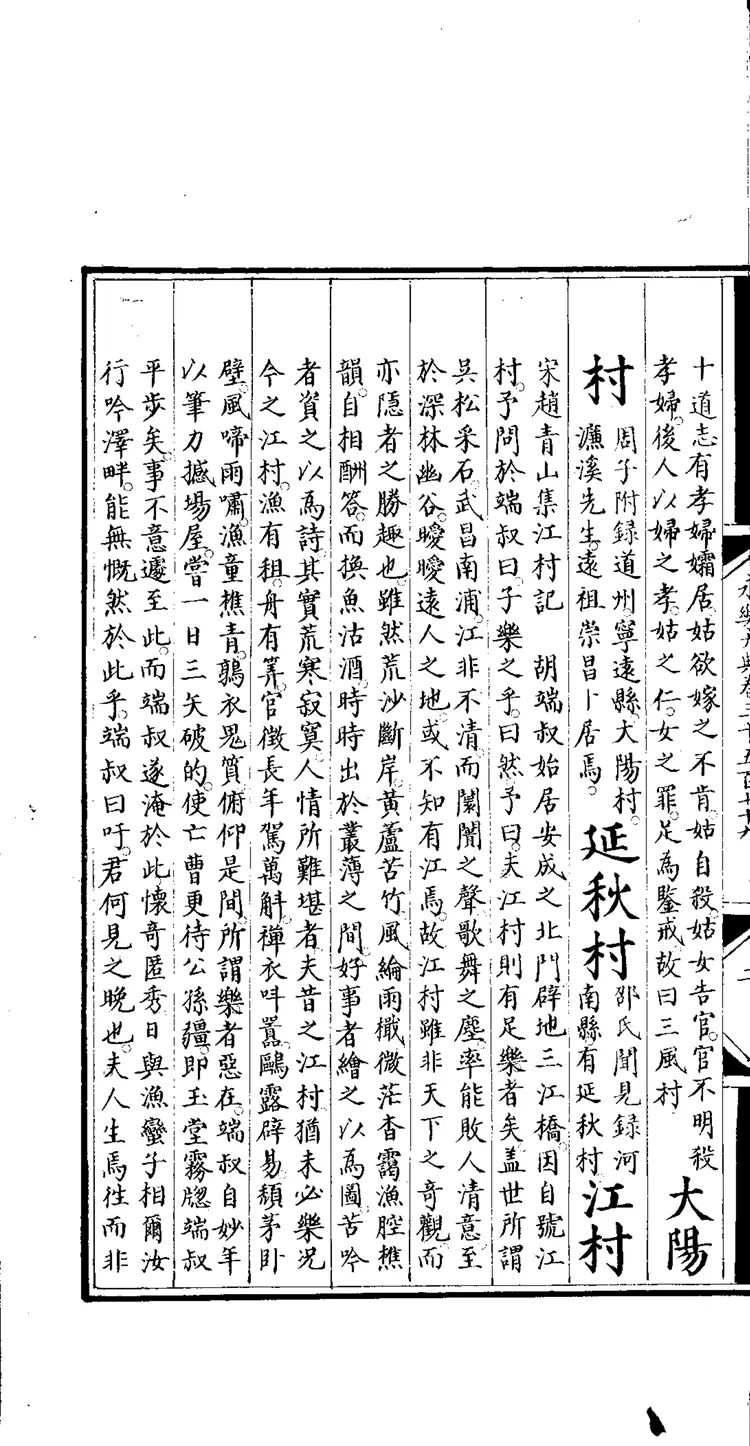 永樂大典卷三千五百七十九
二
十道志有孝婦孀居姑欲嫁之不肯姑自殺姑女告官官不明殺
孝婦後人以婦之孝姑之仁女之罪足為鑒戒故曰三風村
大陽
村
周子附録道州寧遠縣大陽村
濂溪先生遠祖崇昌卜居焉
延秋村
邵氏聞見録河
南縣有延秋村
江村
宋趙青山集江村記 胡端叔始居安成之北門辟地三江橋因自號江
村予問於端叔曰子樂之乎曰然予曰夫江村則有足樂者矣蓋世所謂
吳松采石武昌南浦江非不清而闤闠之聲歌舞之塵率能敗人清意至
於深林幽谷曖曖遠人之地或不知有江焉故江村雖非天下之奇觀而
亦隱者之勝趣也雖然荒沙斷岸黃蘆苦竹風綸雨檝微茫杳靄漁腔樵
韻自相酬答而換魚沽酒時時出於叢薄之間好事者繪之以為圖苦吟
者資之以為詩其實荒寒寂寞人情所難堪者夫昔之江村猶未必樂况
今之江村漁有租舟有筭官徵長年駕萬斛襌衣呌囂鷗露辟易頹茅卧
壁風啼雨嘯漁童樵青鶉衣鬼質俯仰是間所謂樂者惡在端叔自妙年
以筆力撼場屋嘗一日三矢破的使亡曹更待公孫疆即玉堂霧牕端叔
平步矣事不意遽至此而端叔遂淹於此懷奇匿秀日與漁蠻子相爾汝
行吟澤畔能無慨然於此乎端叔曰吁君何見之晚也夫人生焉徃而非